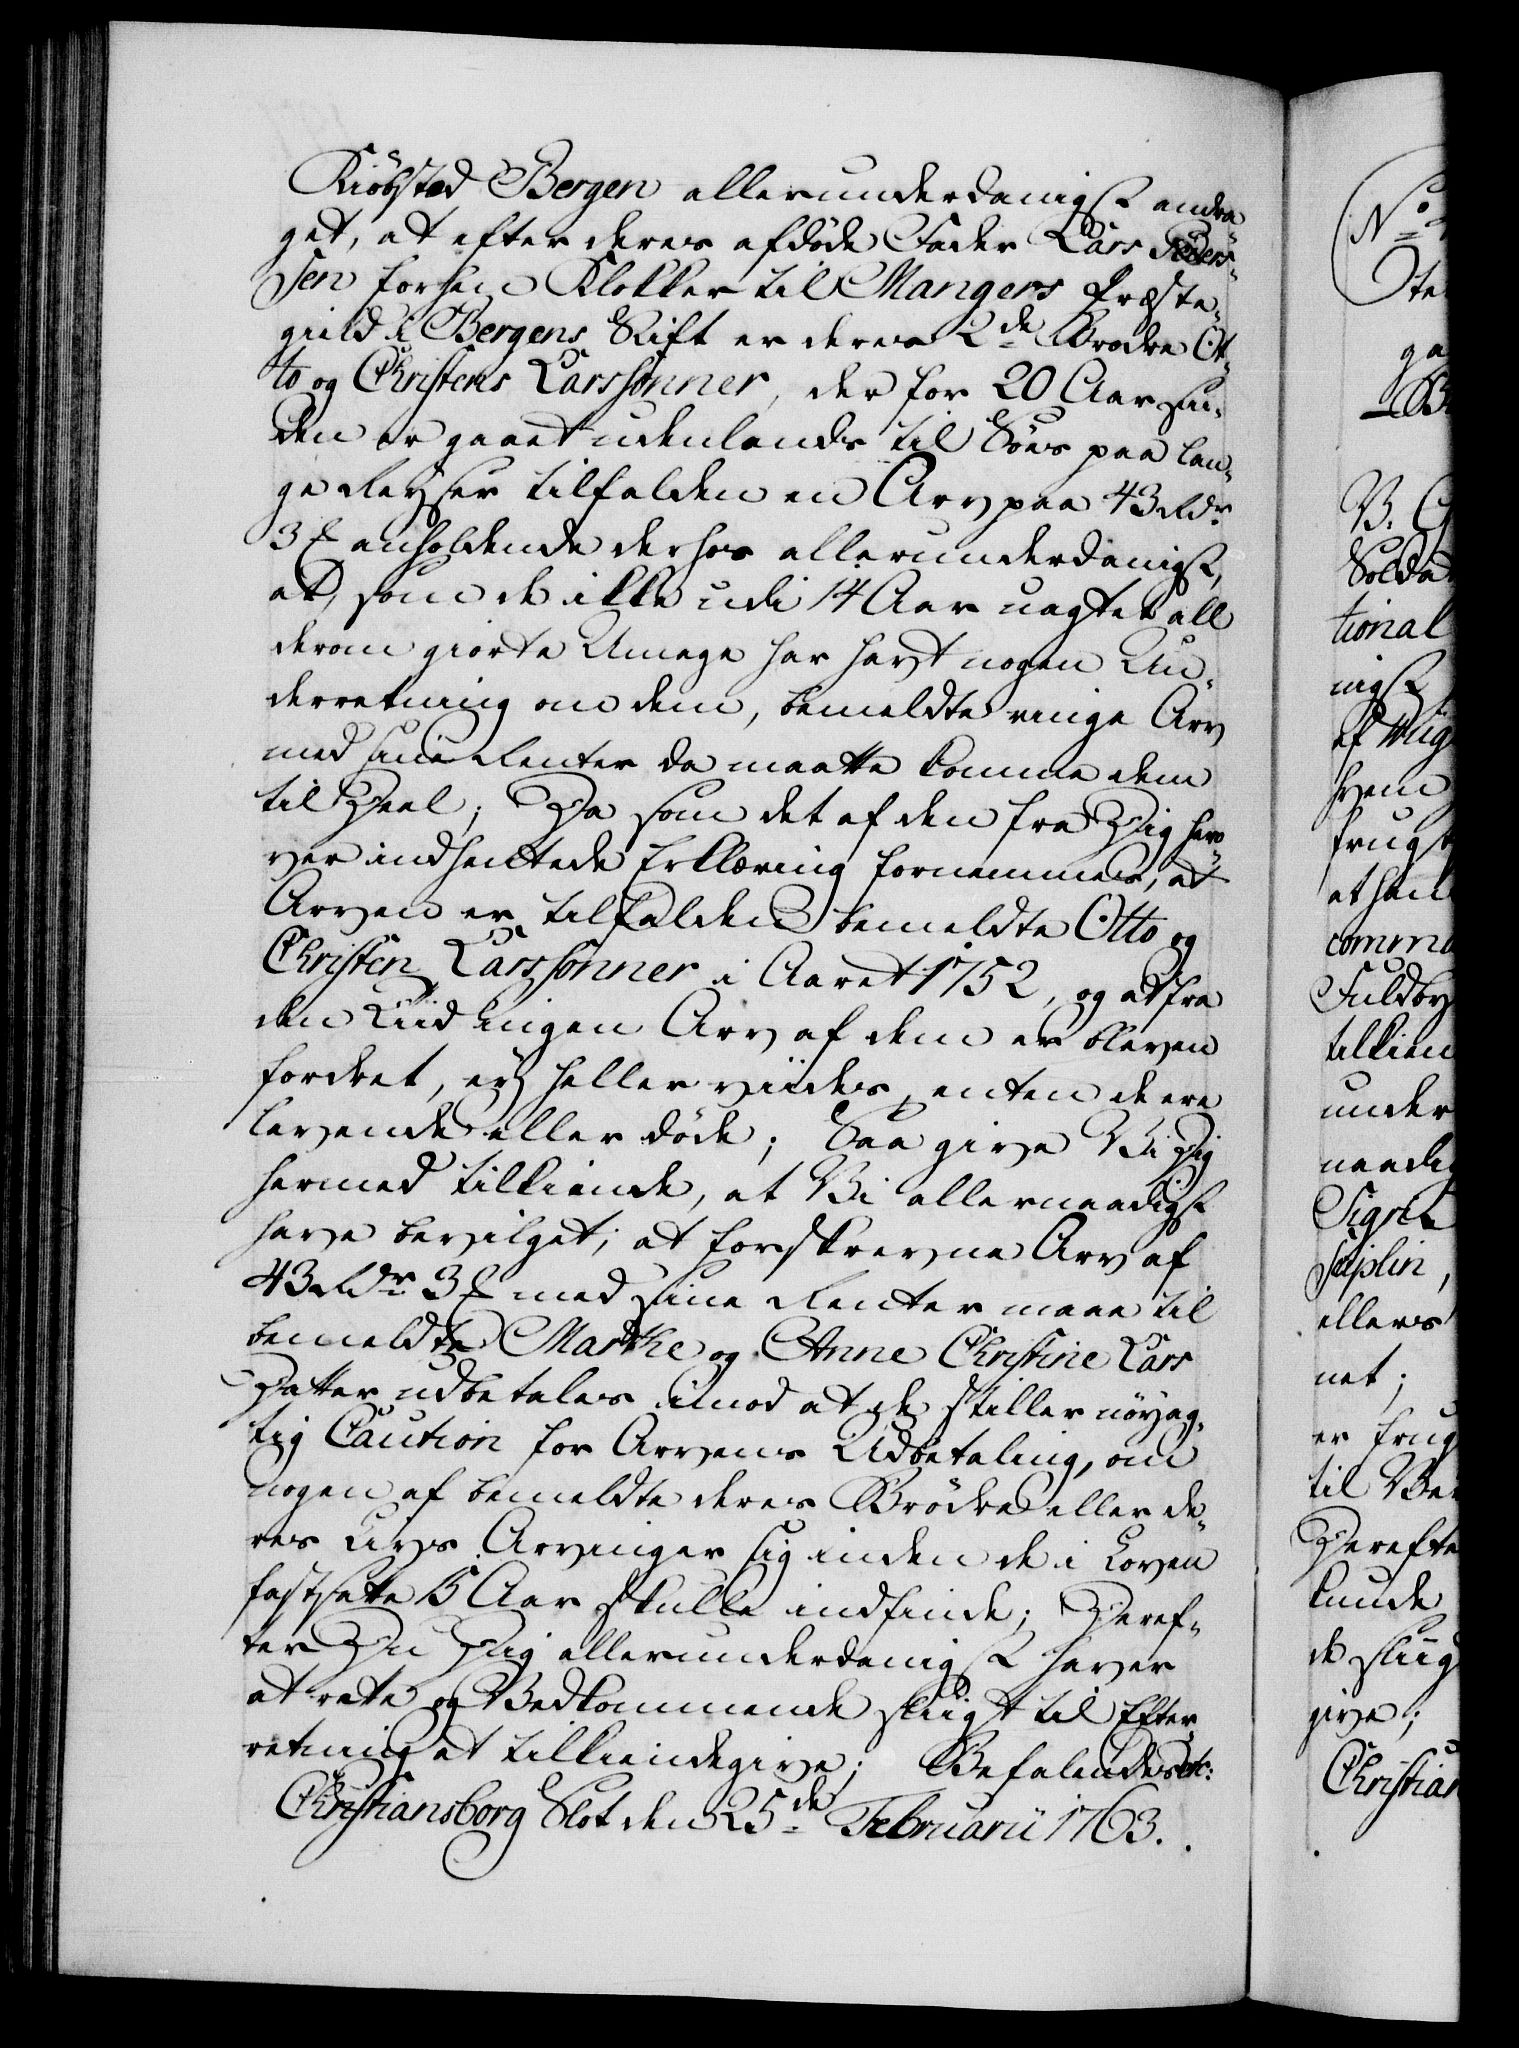 Kiöbstæd Bergen allerunderdanigst andra-
get, at efter deres afdöde Fader Lars Peders-
sen forhen Klokker til Mangers Præste-
gield i Bergens Stift er deres 2de Brødre Ot-
to og Christens Larssønner, der for 20 Aar sii-
den er gaaet udenlands til Söes paa lan-
ge Reyser tilfalden en Arv paa 43 Rdr
3 ß anholdende derhos allerunderdanigst,
at, som de ikke udi 14 Aar uagtet all
derom giorte Umage har havt nogen Un-
derretning om dem, bemeldte ringe Arv
med sine Renter da maatte komme dem
til Deel; Da som det af den fra Dig her-
over indhentede Erklæring fornemmes, at
Arven er tilfalden bemeldte Otto og
Christen Larssønner i Aaret 1752, og at fra
den Tiid ingen Arv af dem er bleven
fordret, ey heller viides, enten de ere
levende eller döde; Saa give Vi Dig
hermed tilkiende, at Vi allernaadigst
have bevilget, at forskrevne Arv af
43 Rdr 3 ß med sine Renter maae til
bemeldte Marthe og Anne Christine Lars
Datter udbetales imod at de stiller nöyag-
tig Caution for Arvens Udbetaling, om
nogen af bemeldte deres Brödre eller de-
res Livs Arvinger sig inden de i Loven
fastsatte 15 Aar skulle indfinde; Deref-
ter Du Dig allerunderdanigst haver
at rette og Vedkommende sligt til Efter-
retning at tilkiendegive; Befalendes etc:
Christiansborg Slot den 25de Februarii 1763.
No
ga
V. G
Soldat
tional
nigst
af
hvem
frugt
at han
comm
Fuldby
tilkien
under
naadig
Sigri
ellers
net;
er frug
til Be
Derefte
kunde
de sliig
give;
Christian